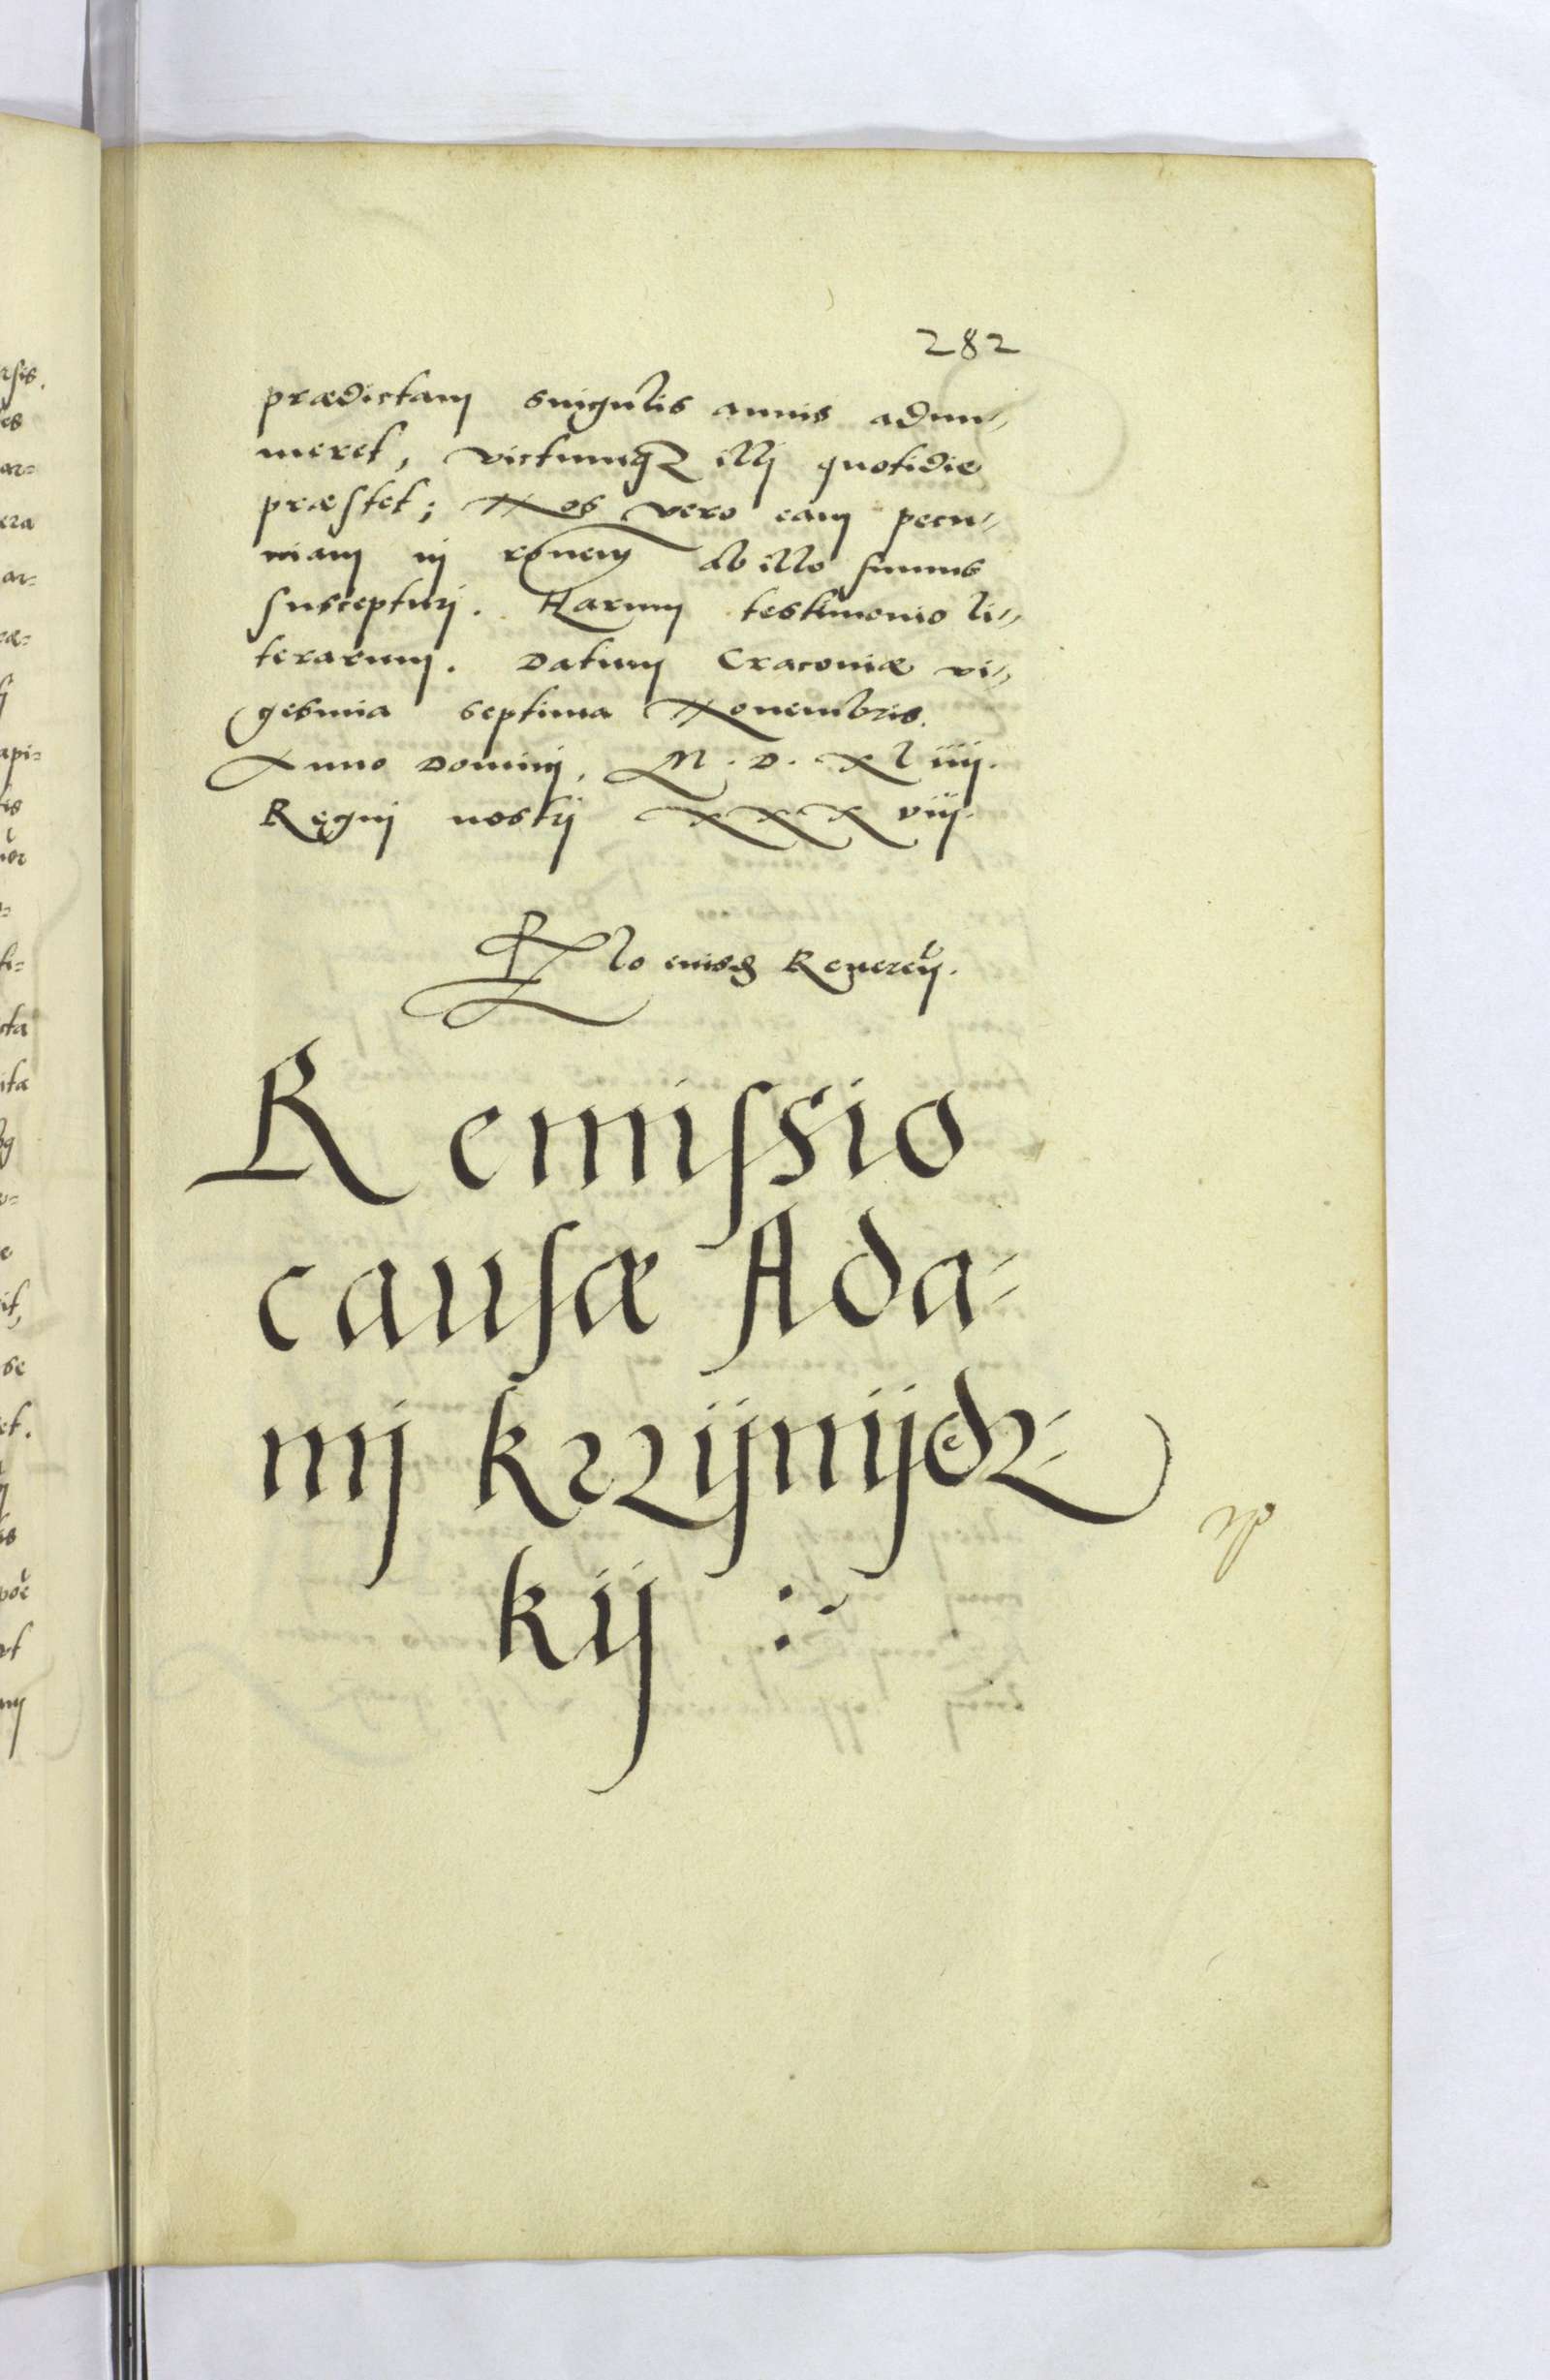 282
prædictam singulis annis adnu-
meret, victumq3 illi quotidie
præstet; Nos vero eam pecu-
niam in ro͠nem ab illo sumus
suscepturi. Harum testimonio li-
terarum. Datum Cracoviæ vi-
gesima septima Novembris.
Anno Domini, M. D. XLiiii.
Regni nostri XXX viij.
Rlo eiusd Reveren.
Remissio
causæ Ada-
mi krzijnijecz-
kij